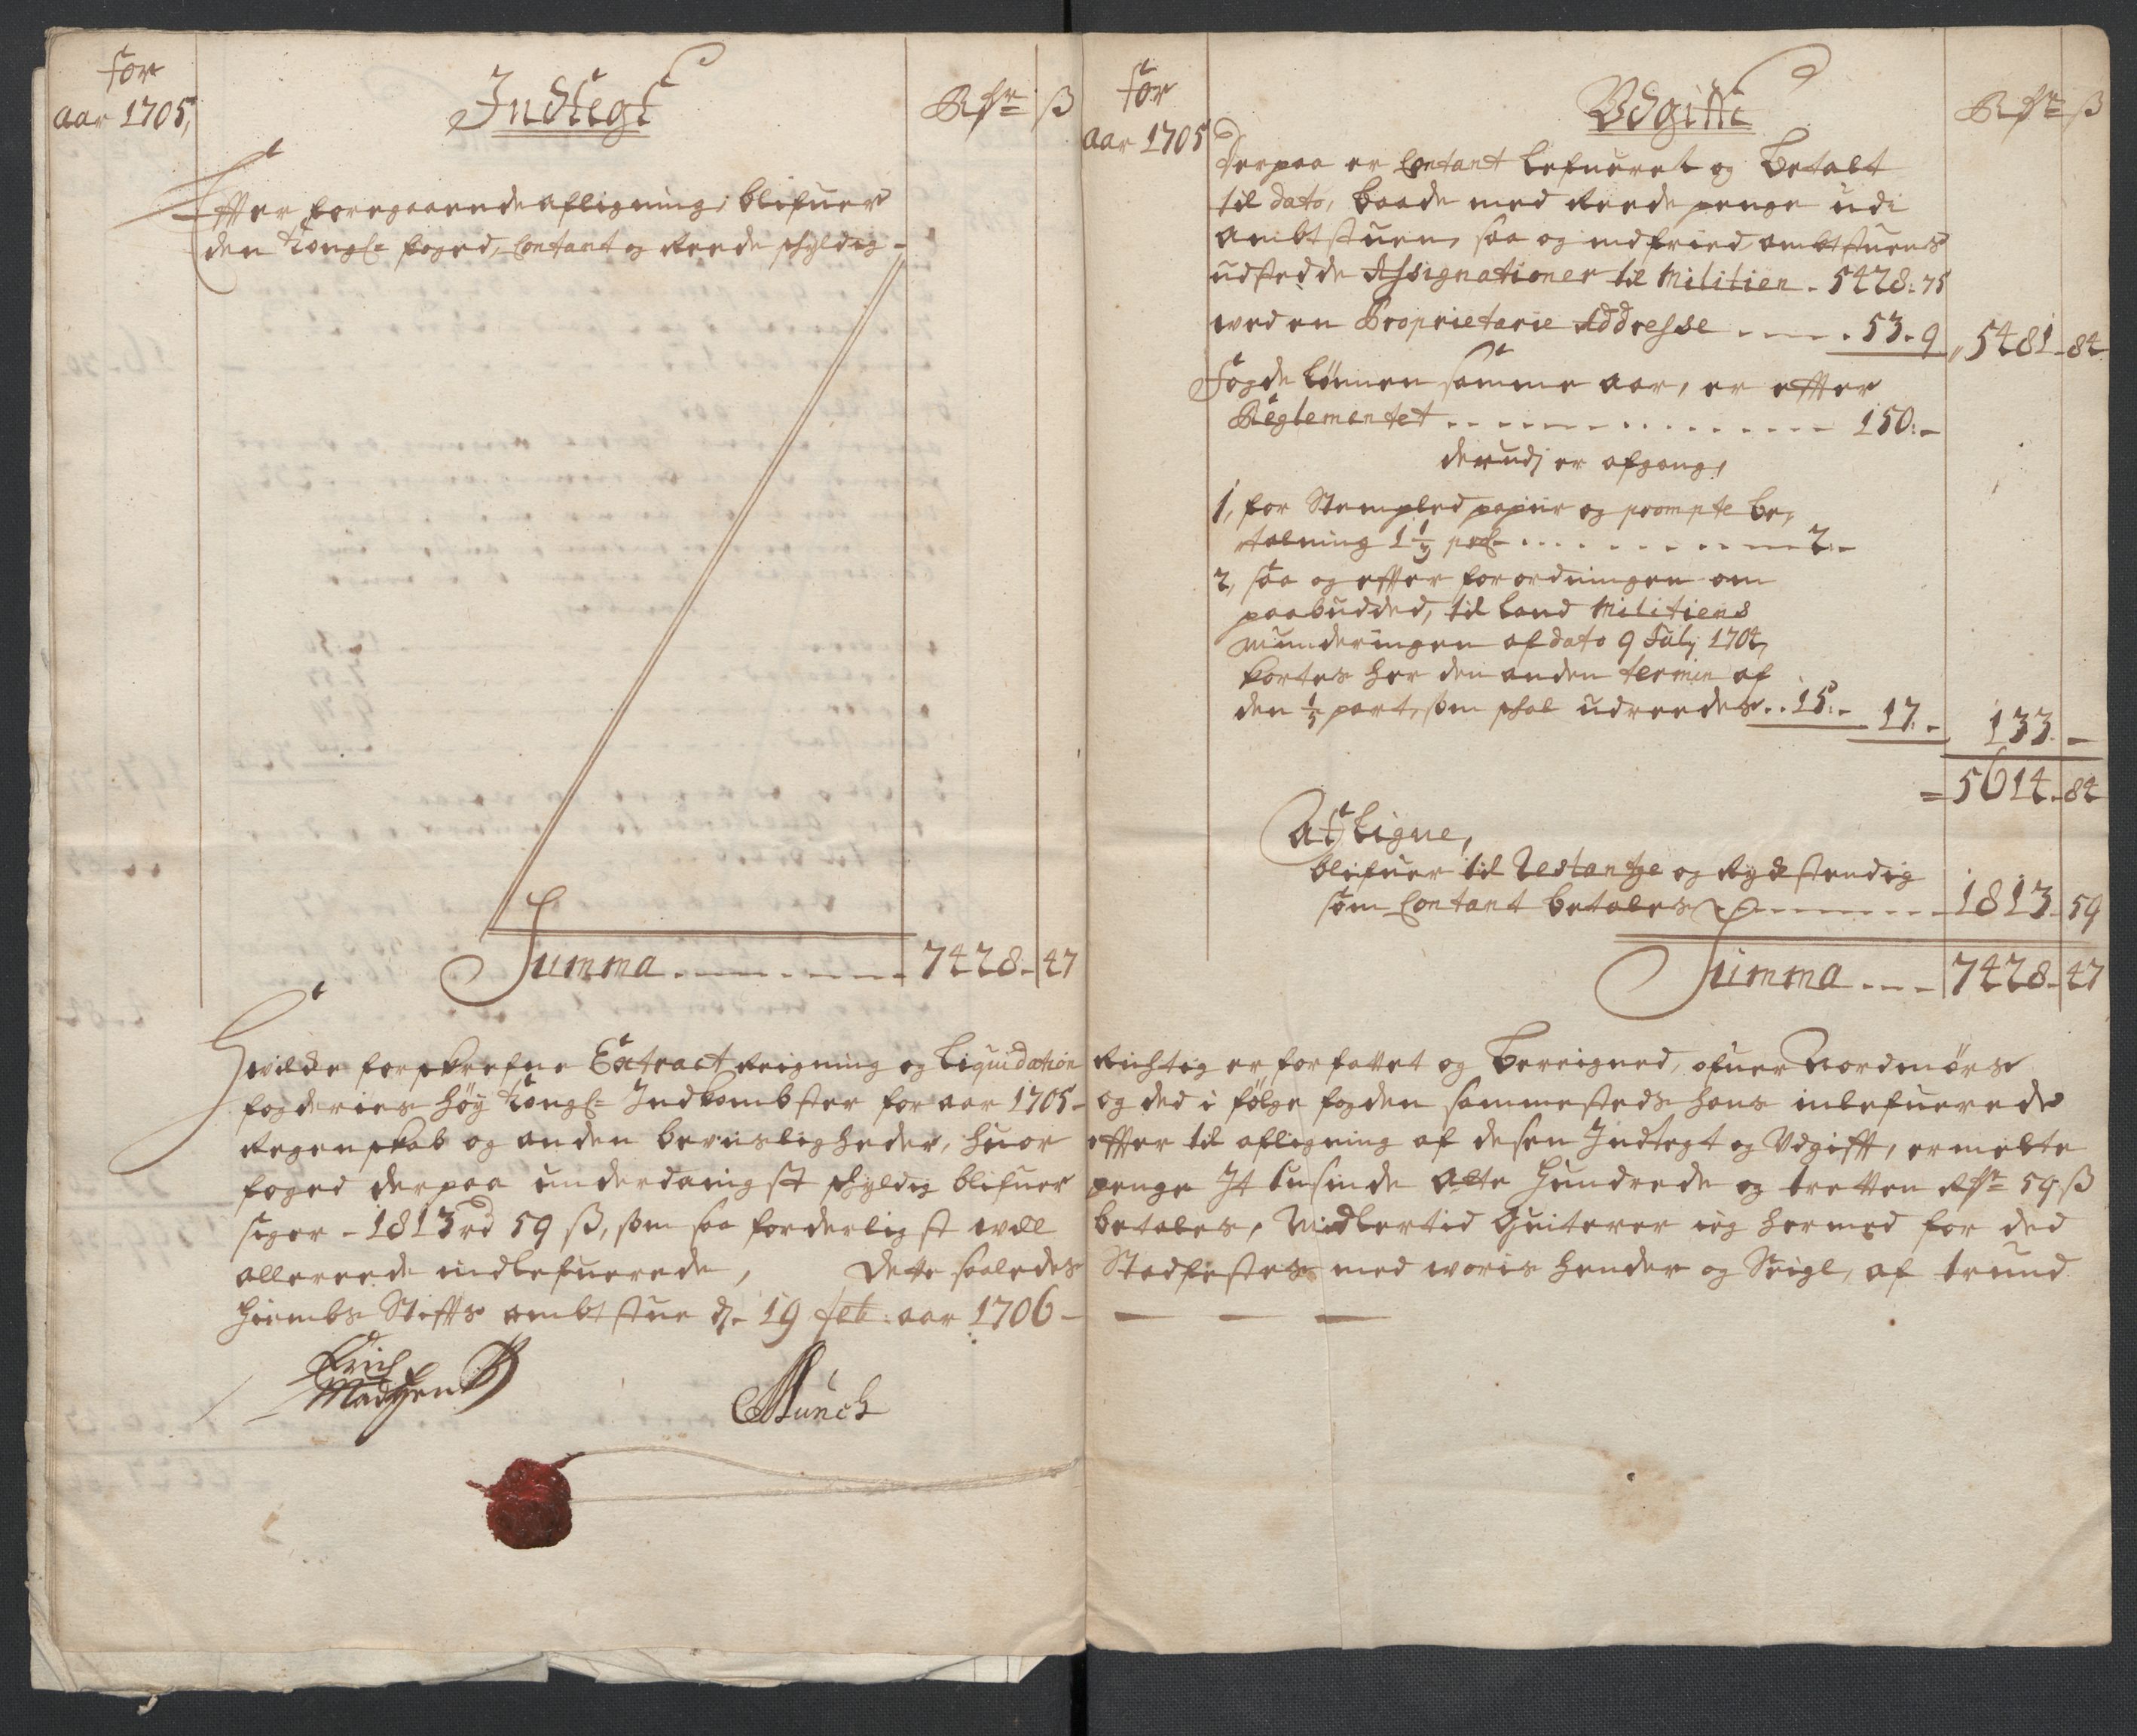 for
Aar 1705,
Indtegt
Rdr ß
Efter foregaaende afligning, blifuer
den Kongl: foged, Contant og Reede schyldig -
Summa 7428 - 47
for
Aar 1705
Udgifft
Rdr ß
Derpaa er Contant lefueret og betalt
til dato, baade med Reede penge udi
Ambtstuen, saa og indfried ambtstuens
udstedde Assignationer til Militien - 5428: 75
wed en Proprietarie Addresse 53 - 9 5481 - 84
Fogde Lønnen samme aar, er effter
Reglementet 150: -
derudj er afgang,
1, for Stempled papiir og prompte be,
talning 1 1/3 pct 2: -
2, saa og effter forordningen om
paabudded, til Land Militiens
munderingen af dato 9 July 1704,
kortes her den anden termin af
den 1/5 part, som schal udreedes 15: - 17: - 133 -
5614 - 84
At Ligne,
blifuer til Restantze og Rydstendig
som Contant betales 1813 - 59
Summa 7428 - 47
Hvilde forschrefne Extract Reigning og Liquidation Richtig er forfattet og bereigned, ofuer Nordmørs
fogderies høy Kongl: Indkombster for aar 1705 - og ded i følge fogden sammesteds hans inlefuerede
Regenschab og anden beviisligheder, huor effter til afligning af desen Indtegt og Udgifft, ermelte
foged derpaa underdanigst schyldig blifuer penge It tusinde Otte Hundrede og tretten Rdr 59 ß
siger - 1813 rd 59 ß, som saa forderligst will betales, Midlertid Quiterer ieg hermed for ded
allereede indlefuerede, Dette saaledes Stadfestes med woris hender og Seigl, af trund
hiembs Stiffts ambtstue d. 19 feb: aar 1706 -
Erich
Madtzen
Munch